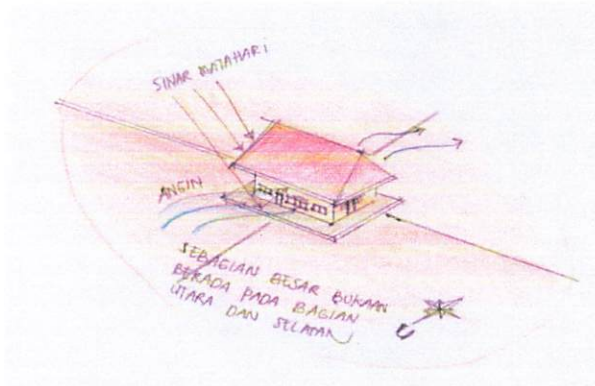 SINAR MATAHARI
ANGIN
SEBAGIAN BESAR BUKAAN
BERADA PADA BAGIAN
UTARA DAN SELATAN
U